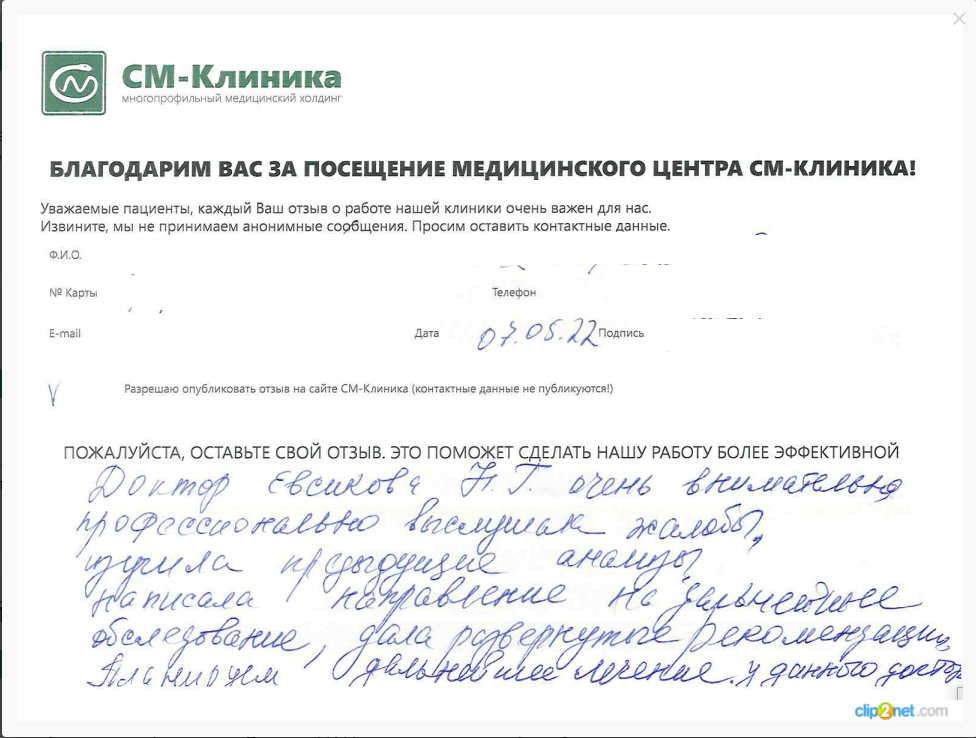 СМ-Клиника
многопрофильный медицинский холдинг
БЛАГОДАРИМ ВАС ЗА ПОСЕЩЕНИЕ МЕДИЦИНСКОГО ЦЕНТРА СМ-КЛИНИКА!
Уважаемые пациенты, каждый Ваш отзыв о работе нашей клиники очень важен для нас.
Извините, мы не принимаем анонимные сообщения. Просим оставить контактные данные.
Ф.И.О.
№ Карты Телефон
E-mail Дата 07.05.22 Подпись
V Разрешаю опубликовать отзыв на сайте СМ-Клиника (контактные данные не публикуются!)
ПОЖАЛУЙСТА, ОСТАВЬТЕ СВОЙ ОТЗЫВ. ЭТО ПОМОЖЕТ СДЕЛАТЬ НАШУ РАБОТУ БОЛЕЕ ЭФФЕКТИВНОЙ
Доктор Евсикова Н.Г. очень внимательно
профессионально выслушала жалобы,
изучила предыдущие анализы
написала направление на дальнейшее
обследование, дала развернутые рекомендации,
Планируем дальнейшее лечение у данного
clip2net.com